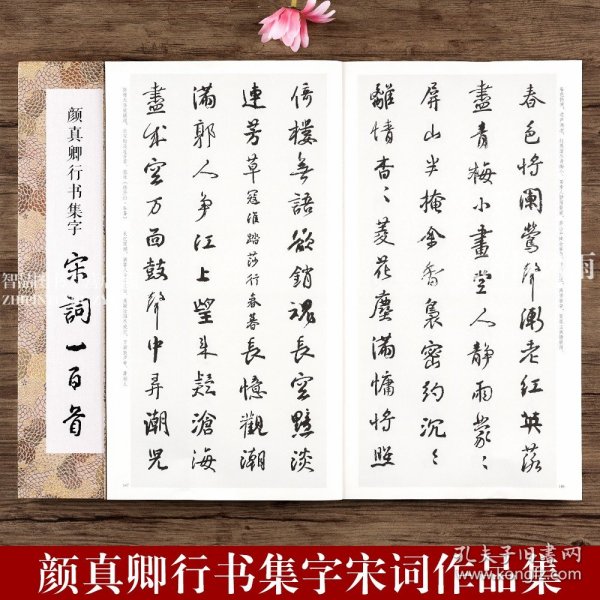 颜真卿行书集字
宋詞一百首
春色將闌鶯聲漸老紅英落
盡青梅小畫堂人靜雨濛〻
屏山半掩余香裊密約沉〻
離情杳〻菱花塵滿慵將照
倚樓無語欲銷魂長空黯淡
連芳草寇准踏莎行春暮長憶觀潮
滿郭人爭江上望來疑滄海
盡成空万面鼓聲中弄潮兒
孔夫子旧书网
www.kongfz.com
颜真卿行书集字宋词作品集